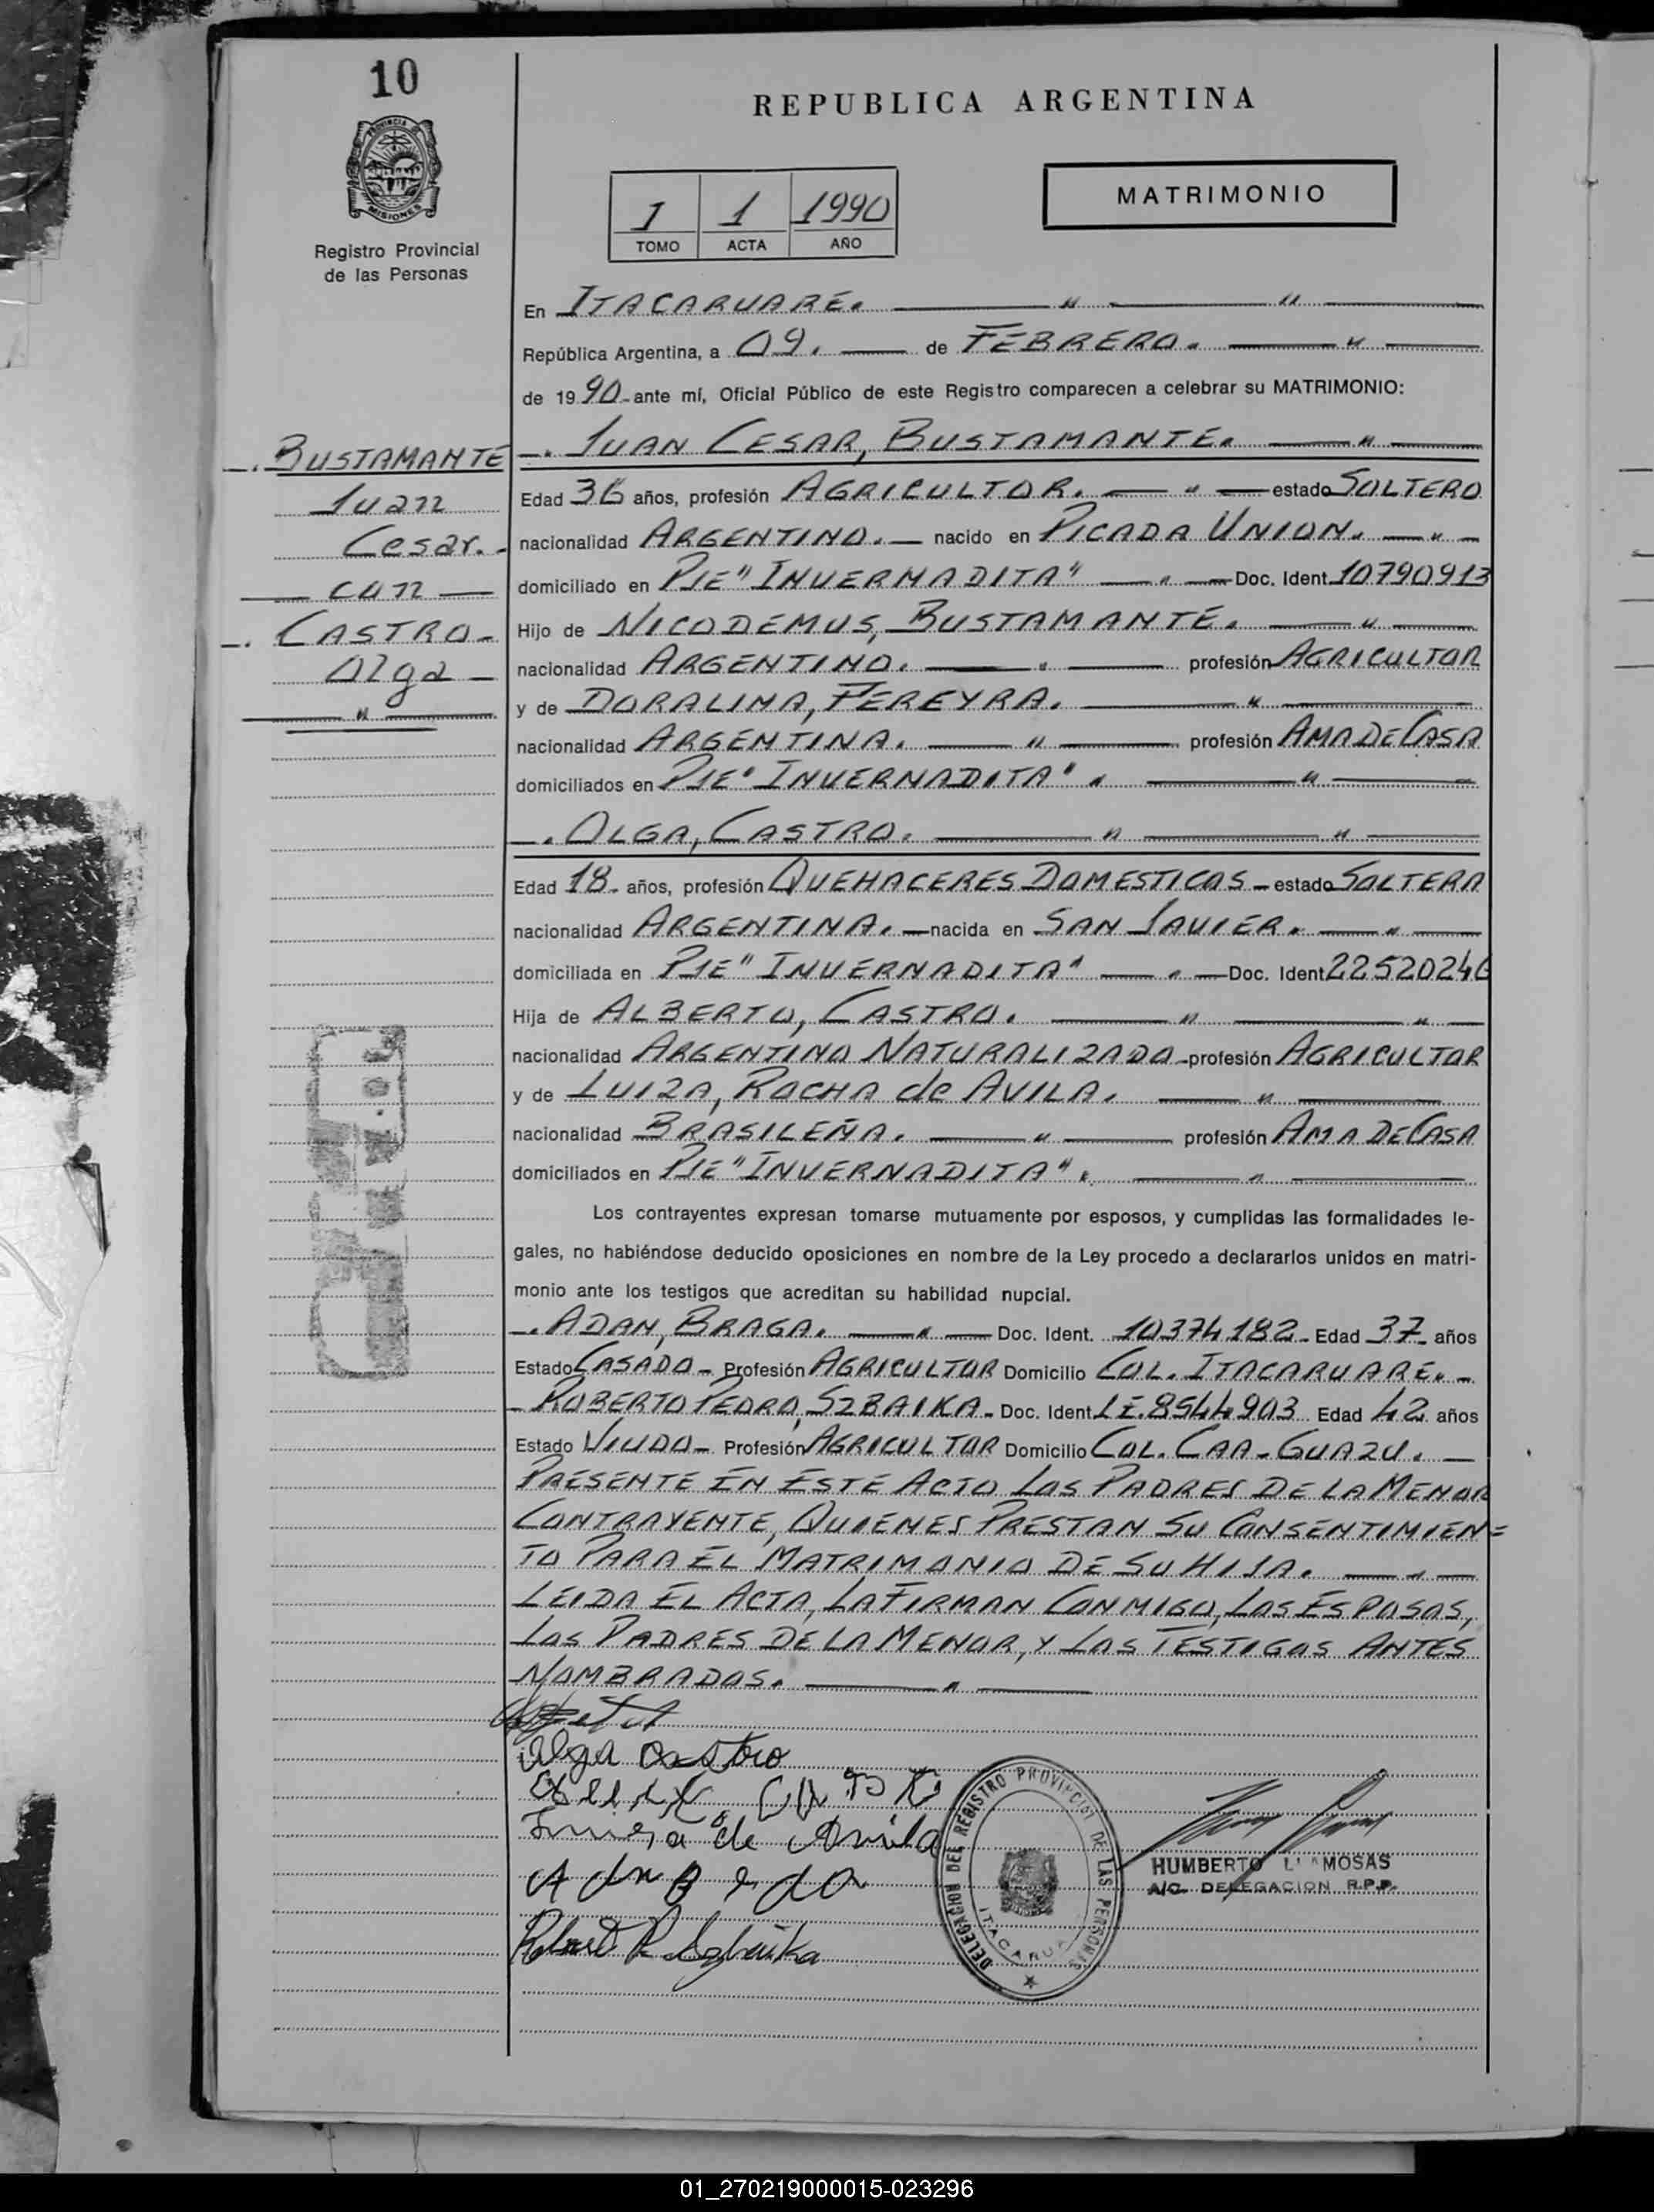 10
PROVINCIA DE
MISIONES
Registro Provincial
de las Personas
REPUBLICA ARGENTINA
I 1 1990
TOMO ACTA AÑO
MATRIMONIO
En ITACARUARE. — " — " —
República Argentina, a 09. — de FEBRERO. — " —
de 1990-ante mí, Oficial Público de este Registro comparecen a celebrar su MATRIMONIO:
—. BUSTAMANTE
Juan
Cesar.-
— con —
—. CASTRO-
Olga —
— " —
—. JUAN CESAR, BUSTAMANTE. — " —
Edad 36 años, profesión AGRICULTOR. — " — estado SOLTERO
nacionalidad ARGENTINO. — nacido en PICADA UNION. — " —
domiciliado en PJE "INVERNADITA" — " — Doc. Ident 10790913
Hijo de NICODEMUS, BUSTAMANTE. — " —
nacionalidad ARGENTINO. — " — profesión AGRICULTOR
y de DORALINA, PEREYRA. — " —
nacionalidad ARGENTINA. — " — profesión AMA DE CASA
domiciliados en PJE "INVERNADITA". — " —
—. OLGA, CASTRO. — " — " —
Edad 18. años, profesión QUEHACERES DOMESTICOS — estado SOLTERA
nacionalidad ARGENTINA. — nacida en SAN JAVIER. — " —
domiciliada en PJE "INVERNADITA" — " — Doc. Ident 22520246
Hija de ALBERTO, CASTRO. — " — " —
nacionalidad ARGENTINO NATURALIZADO - profesión AGRICULTOR
y de LUIZA, ROCHA de AVILA. — " —
nacionalidad BRASILEÑA. — " — profesión AMA DE CASA
domiciliados en PJE "INVERNADITA". — " —
Los contrayentes expresan tomarse mutuamente por esposos, y cumplidas las formalidades le-
gales, no habiéndose deducido oposiciones en nombre de la Ley procedo a declararlos unidos en matri-
monio ante los testigos que acreditan su habilidad nupcial.
—. ADAN, BRAGA. — " — Doc. Ident. 10374182 - Edad 37 - años
Estado CASADO - Profesión AGRICULTOR Domicilio COL. ITACARUARE. -
- ROBERTO PEDRO, SZBAIKA - Doc. Ident L.E. 8544903 Edad 42 años
Estado VIUDO - Profesión AGRICULTOR Domicilio COL. CAA-GUAZU. —
PRESENTE EN ESTE ACTO LOS PADRES DE LA MENOR
CONTRAYENTE, QUIENES PRESTAN SU CONSENTIMIEN=
TO PARA EL MATRIMONIO DE SU HIJA. — " —
LEIDA EL ACTA, LA FIRMAN CONMIGO, LOS ESPOSOS,
LOS PADRES DE LA MENOR, Y LOS TESTIGOS ANTES
NOMBRADOS. — " —
Olga Castro
de Avila
Roberto P. Szbaika
DELEGACION DEL REGISTRO PROVINCIAL DE LAS PERSONAS
HUMBERTO MOSAS
A/C. DELEGACION R.P.P.
01_270219000015-023296